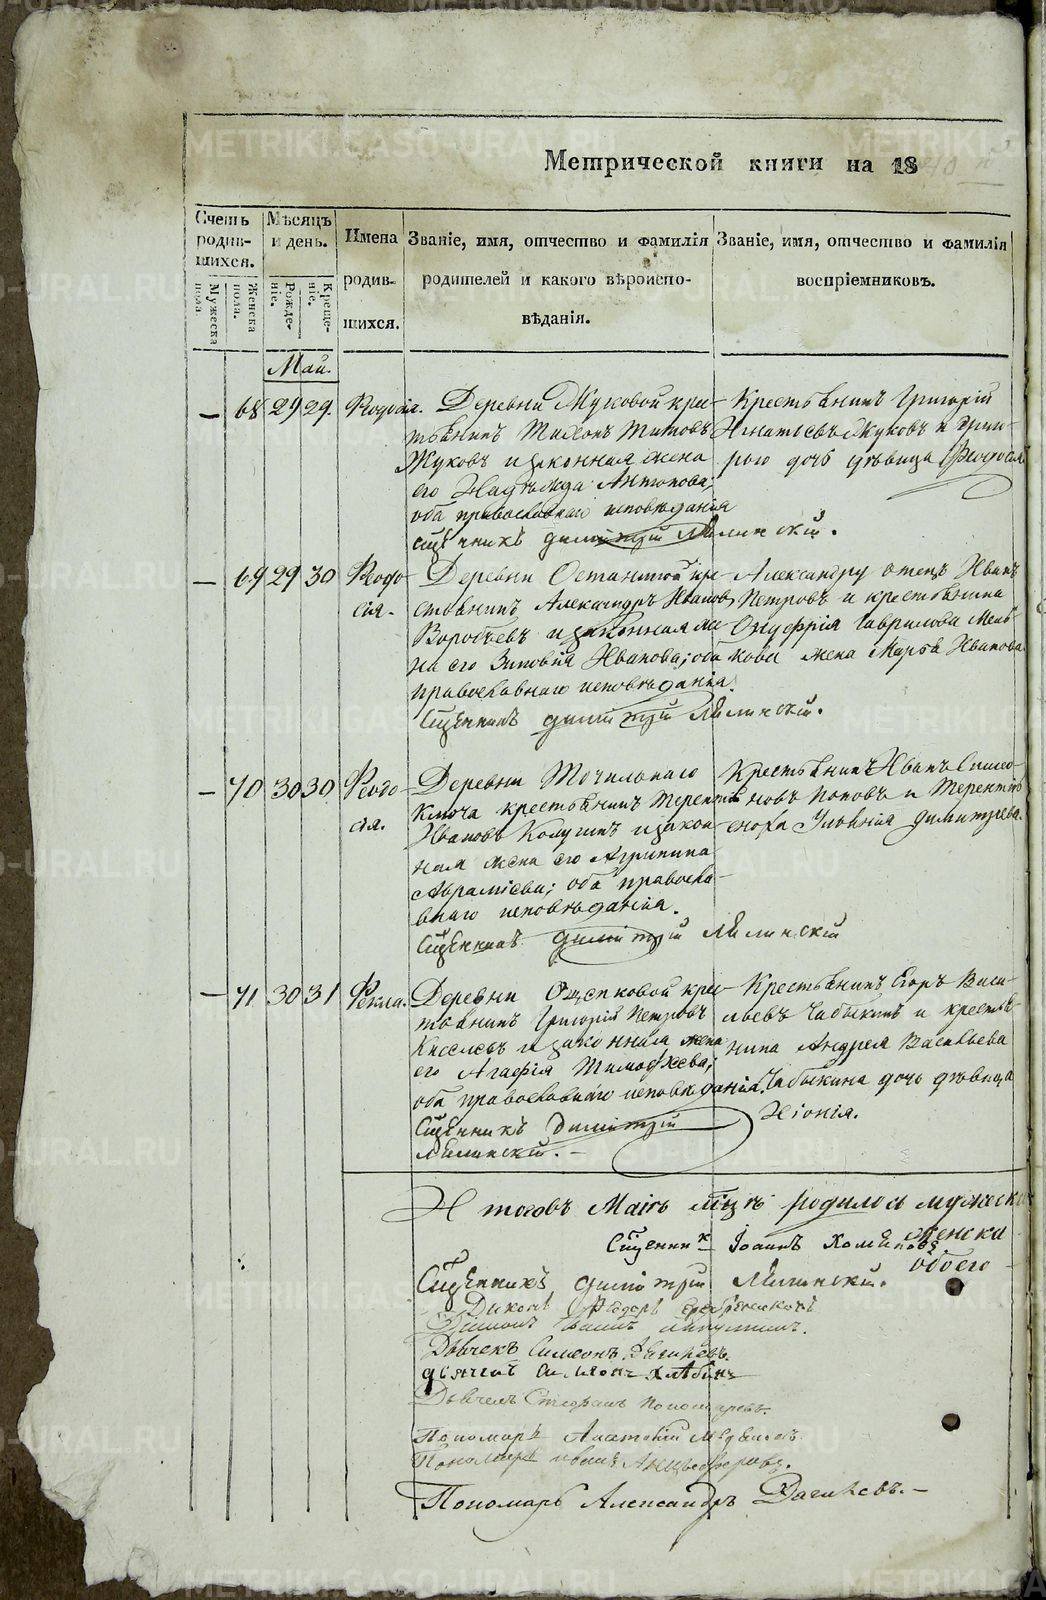 Метрической книги на 1840
Счетъ родившихся.
Мужеска пола.
Женска пола.
Мѣсяцъ и день.
Рожденіе.
Крещеніе.
Имена родившихся.
Званіе, имя, отчество и фамилія родителей и какого вѣроисповѣданія.
Званіе, имя, отчество и фамилія воспріемниковъ.
Май.
— 68 29 29. Ѳеодосія.
Деревни Жуковой кре-
стьянинъ Тихонъ Титовъ
Жуковъ и законная жена
его Надѣжда Антонова;
оба православнаго исповѣданія
Сщенникъ Димитрій
Крестьянинъ Григорій
Игнатьевъ Жуковъ и Григо-
рью дочь дѣвица Ѳеодосья
— 69 29 30 Ѳеодо-
сія.
Деревни кре-
стьянинъ Александръ Ивановъ
Воробьевъ и законная же-
на его Зиновія Иванова; оба
православнаго исповѣданія.
Сщенникъ Димитрій
Александру отецъ Иванъ
Петровъ и крестьянина
Онуфрія Гаврилова
жена Марѳа Иванова
— 70 30 30 Ѳеодо-
сія.
Деревни Точильнаго
Ключа крестьянинъ Терентій
Ивановъ и закон-
ная жена его Агрипина
Авраміева; оба правосла-
внаго исповѣданія.
Сщенникъ Димитрій
Крестьянинъ Иванъ Симео-
новъ Поповъ и Терентію
сноха Ульянія Димитріева.
— 71 30 31 Ѳекла.
Деревни Ощепковой кре-
стьянинъ Григорій Петровъ
Киселевъ и законная жена
его Агафія Тимофѣева;
оба православнаго исповѣданія.
Сщенникъ Димитрій
Крестьянинъ Егоръ Васи-
льевъ Чабыкинъ и крестья-
нина Андрея Васильева
Чабыкина дочь дѣвица
Хіонія.
Итого въ Маіѣ мцѣ родилось мужеска
женска
обоего
Сщенник Іоаннъ Хомяковъ
Сщенникъ Димитрій
Діаконъ Ѳедоръ Серебрениковъ
Дьячекъ Симеонъ
Дьячекъ Симеонъ Хлѣбинъ
Дьячекъ Стефанъ Пономаревъ.
Пономарь Анатолій Медвѣдевъ
Пономарь Иванъ
Пономарь Александръ
METRIKI.GASO-URAL.RU